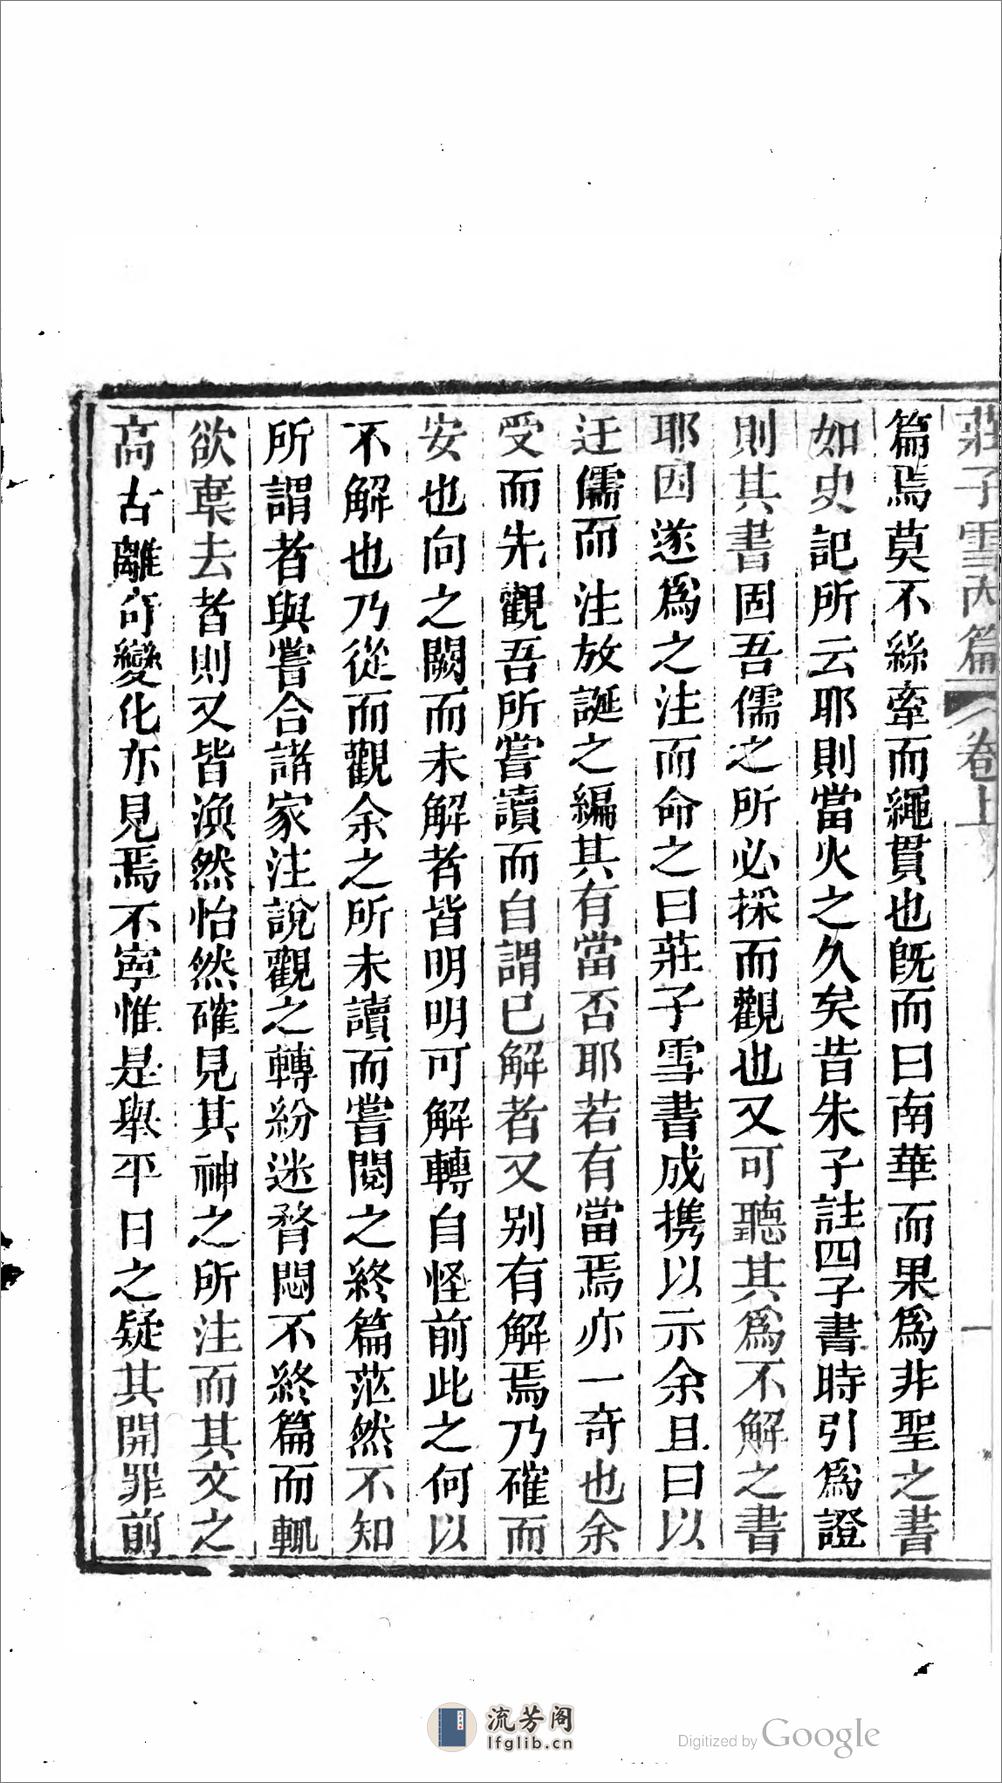 莊子雪內篇 卷上 一
篇焉莫不絲牽而繩貫也旣而曰南華而果爲非聖之書
如史記所云耶則當火之久矣昔朱子註四子書時引爲證
則其書固吾儒之所必採而觀也又可聽其爲不解之書
耶因遂爲之注而命之曰莊子雪書成携以示余且曰以
迂儒而注放誕之編其有當否耶若有當焉亦一奇也余
受而先觀吾所嘗讀而自謂已解者又别有解焉乃確而
安也向之闕而未解者皆明明可解轉自怪前此之何以
不解也乃從而觀余之所未讀而嘗閱之終篇茫然不知
所謂者與嘗合諸家注說觀之轉紛迷瞀悶不終篇而輒
欲棄去者則又皆渙然怡然確見其神之所注而其文之
高古離奇變化亦見焉不寧惟是舉平日之疑其開罪前
流芳阁
lfglib.cn
Digitized by Google